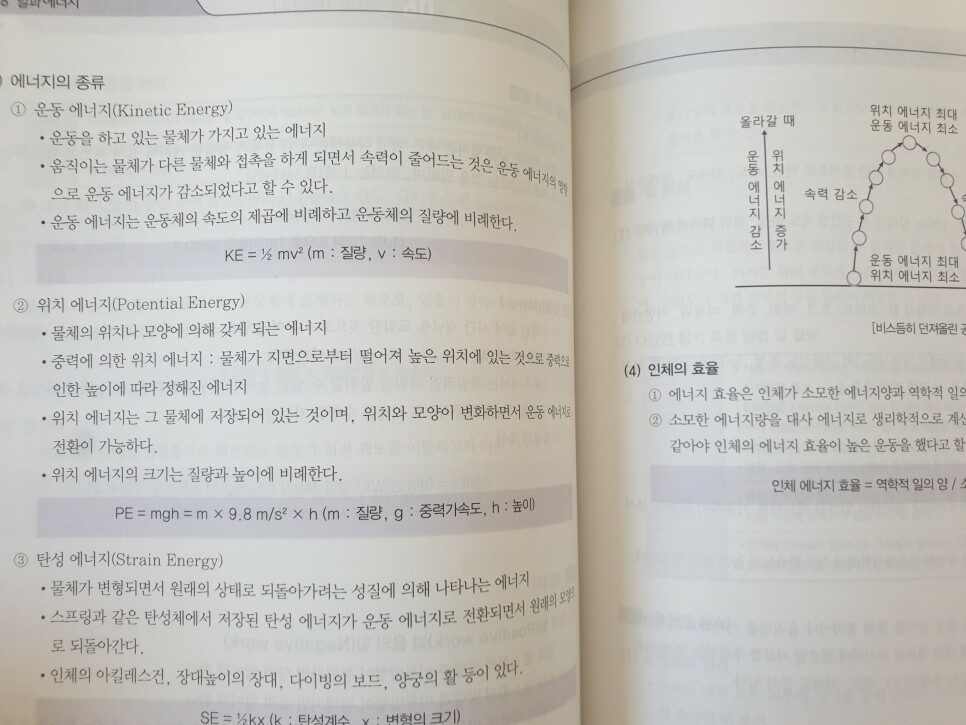 일과 에너지
에너지의 종류
① 운동 에너지(Kinetic Energy)
• 운동을 하고 있는 물체가 가지고 있는 에너지
• 움직이는 물체가 다른 물체와 접촉을 하게 되면서 속력이 줄어드는 것은 운동 에너지의 영향
으로 운동 에너지가 감소되었다고 할 수 있다.
• 운동 에너지는 운동체의 속도의 제곱에 비례하고 운동체의 질량에 비례한다.
KE = ½ mv² (m : 질량, v : 속도)
② 위치 에너지(Potential Energy)
• 물체의 위치나 모양에 의해 갖게 되는 에너지
• 중력에 의한 위치 에너지 : 물체가 지면으로부터 떨어져 높은 위치에 있는 것으로 중력으로
인한 높이에 따라 정해진 에너지
• 위치 에너지는 그 물체에 저장되어 있는 것이며, 위치와 모양이 변화하면서 운동 에너지로
전환이 가능하다.
• 위치 에너지의 크기는 질량과 높이에 비례한다.
PE = mgh = m × 9.8 m/s² × h (m : 질량, g : 중력가속도, h : 높이)
③ 탄성 에너지(Strain Energy)
• 물체가 변형되면서 원래의 상태로 되돌아가려는 성질에 의해 나타나는 에너지
• 스프링과 같은 탄성체에서 저장된 탄성 에너지가 운동 에너지로 전환되면서 원래의 모양으
로 되돌아간다.
• 인체의 아킬레스건, 장대높이의 장대, 다이빙의 보드, 양궁의 활 등이 있다.
SE = ½kx (k : 탄성계수, x : 변형의 크기)
올라갈 때
운동 에너지 감소
위치 에너지 증가
위치 에너지 최대
운동 에너지 최소
속력 감소
운동 에너지 최대
위치 에너지 최소
[비스듬히 던져올린 공
(4) 인체의 효율
① 에너지 효율은 인체가 소모한 에너지양과 역학적 일의
② 소모한 에너지량을 대사 에너지로 생리학적으로 계산
같아야 인체의 에너지 효율이 높은 운동을 했다고 할
인체 에너지 효율 = 역학적 일의 양 / 소